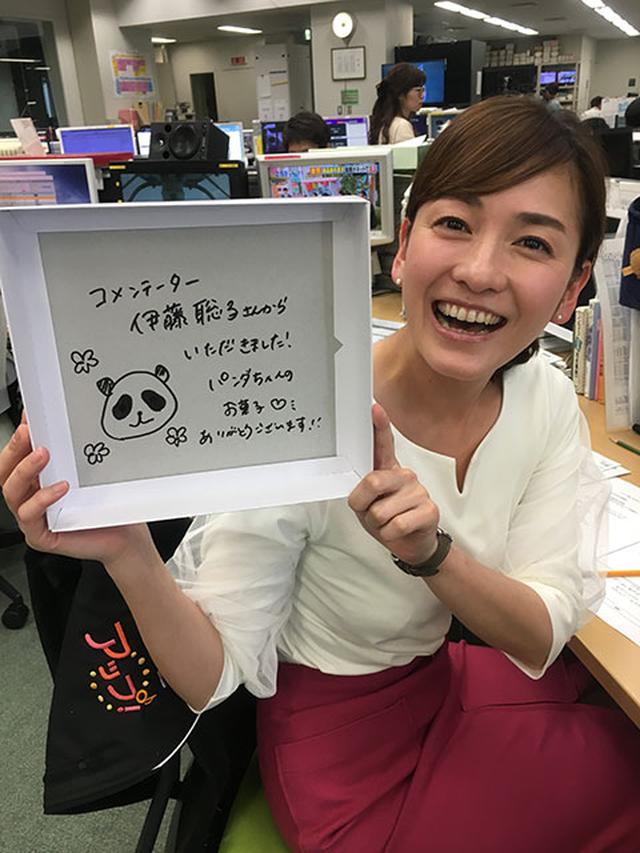 コメンテーター
伊藤聡子さんから
いただきました!
パンダちゃんの
お菓子♡
ありがとうございます!!
アップ!